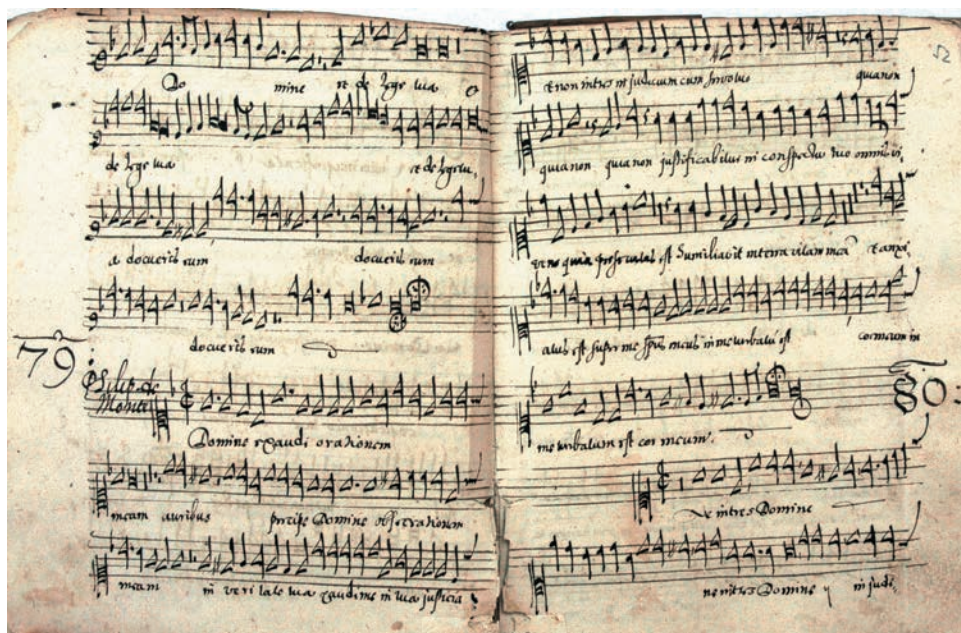 mine et de lege tua
de lege tua et de lege tu,
a docueris eum docueris eum
docueris eum
79
Philip. de
Monte
Domine exaudi orationem
meam auribus percipe Domine obsecrationem
meam in veritate tua exaudi me in tua justicia
52
et non intres in judicium cum servo tuo quia non
quia non quia non justificabitur in conspectu tuo omnis vi,
est humiliavit in terra vitam meã et anxi,
atus est super me spūs meus in me turbatū est cor meum in
me turbatum est cor meum.
80
ne intres Domine
ne intres Domine ij in judi,